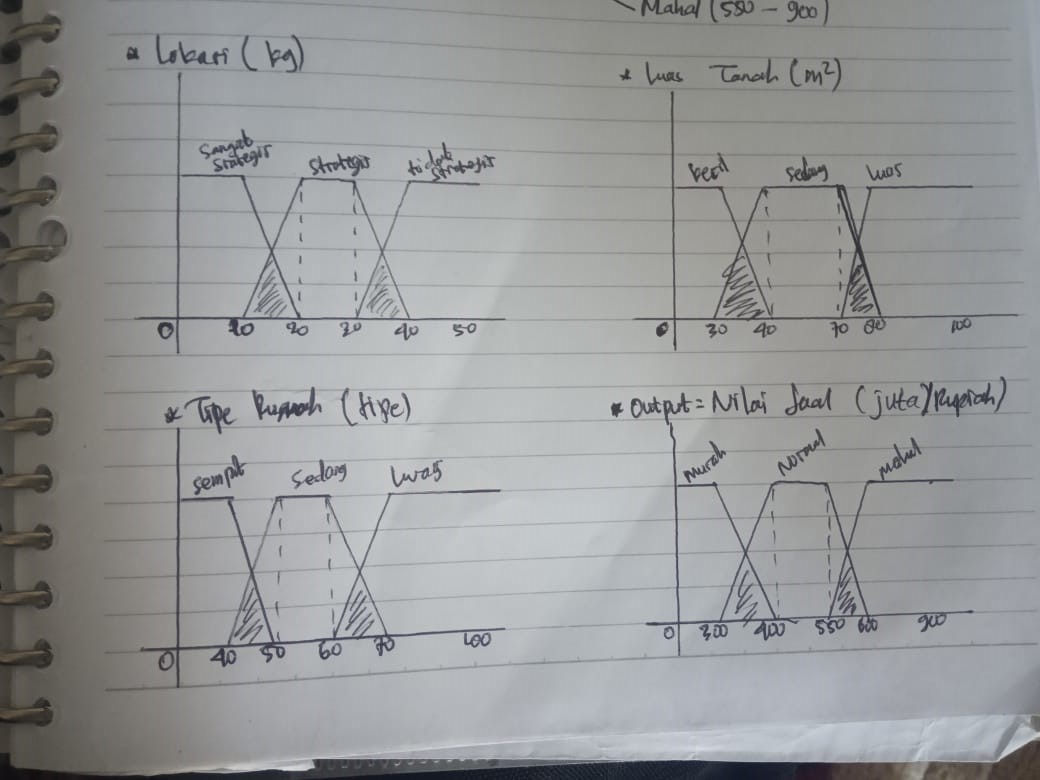 Mahal (550 - 900)
* Lokasi (kg)
sangat strategis
strategis
tidak strategis
0 10 20 30 40 50
* Luas Tanah (m²)
kecil
sedang
luas
0 30 40 70 80 100
* Tipe Rumah (tipe)
sempit
sedang
luas
0 40 50 60 70 100
* Output = Nilai Jual (juta)(Rupiah)
Murah
Normal
Mahal
0 300 400 550 600 900